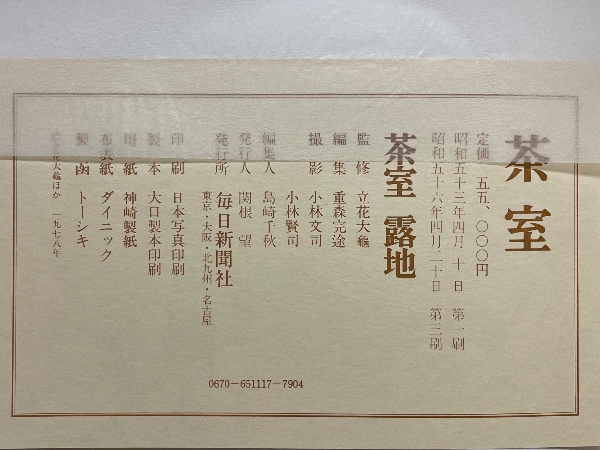 茶室
定価 五五、〇〇〇円
昭和五十三年四月十日 第一刷
昭和五十六年四月二十日 第三刷
茶室 露地
監修 立花大龜
編集 重森完途
撮影 小林文司
小林賢司
編集人 島崎千秋
発行人 関根 望
発行所 毎日新聞社
東京・大阪・北九州・名古屋
印刷 日本写真印刷
製本 大口製本印刷
用紙 神崎製紙
布表紙 ダイニック
製函 トーシキ
花大龜ほか 一九七八年
0670-651117-7904